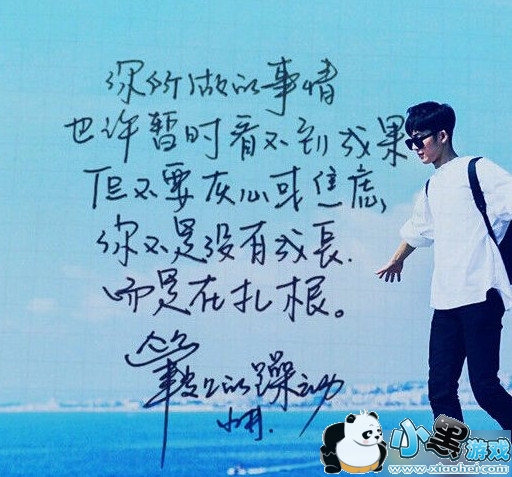 你所做的事情
也许暂时看不到成果
但不要灰心或焦虑,
你不是没有成長.
而是在扎根。
的躁动
小黑游戏
www.xiaohei.com